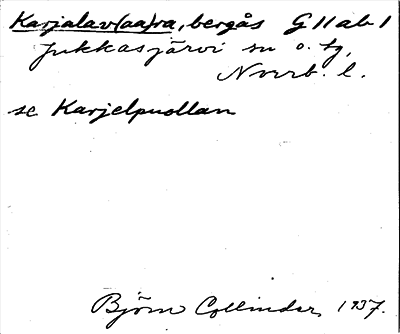 Karjalav(aa)ra, bergås G 11 ab 1
Jukkasjärvi sn o. tg,
Norrb. l.
se Karjelpuollan
Björn Collinder 1937.